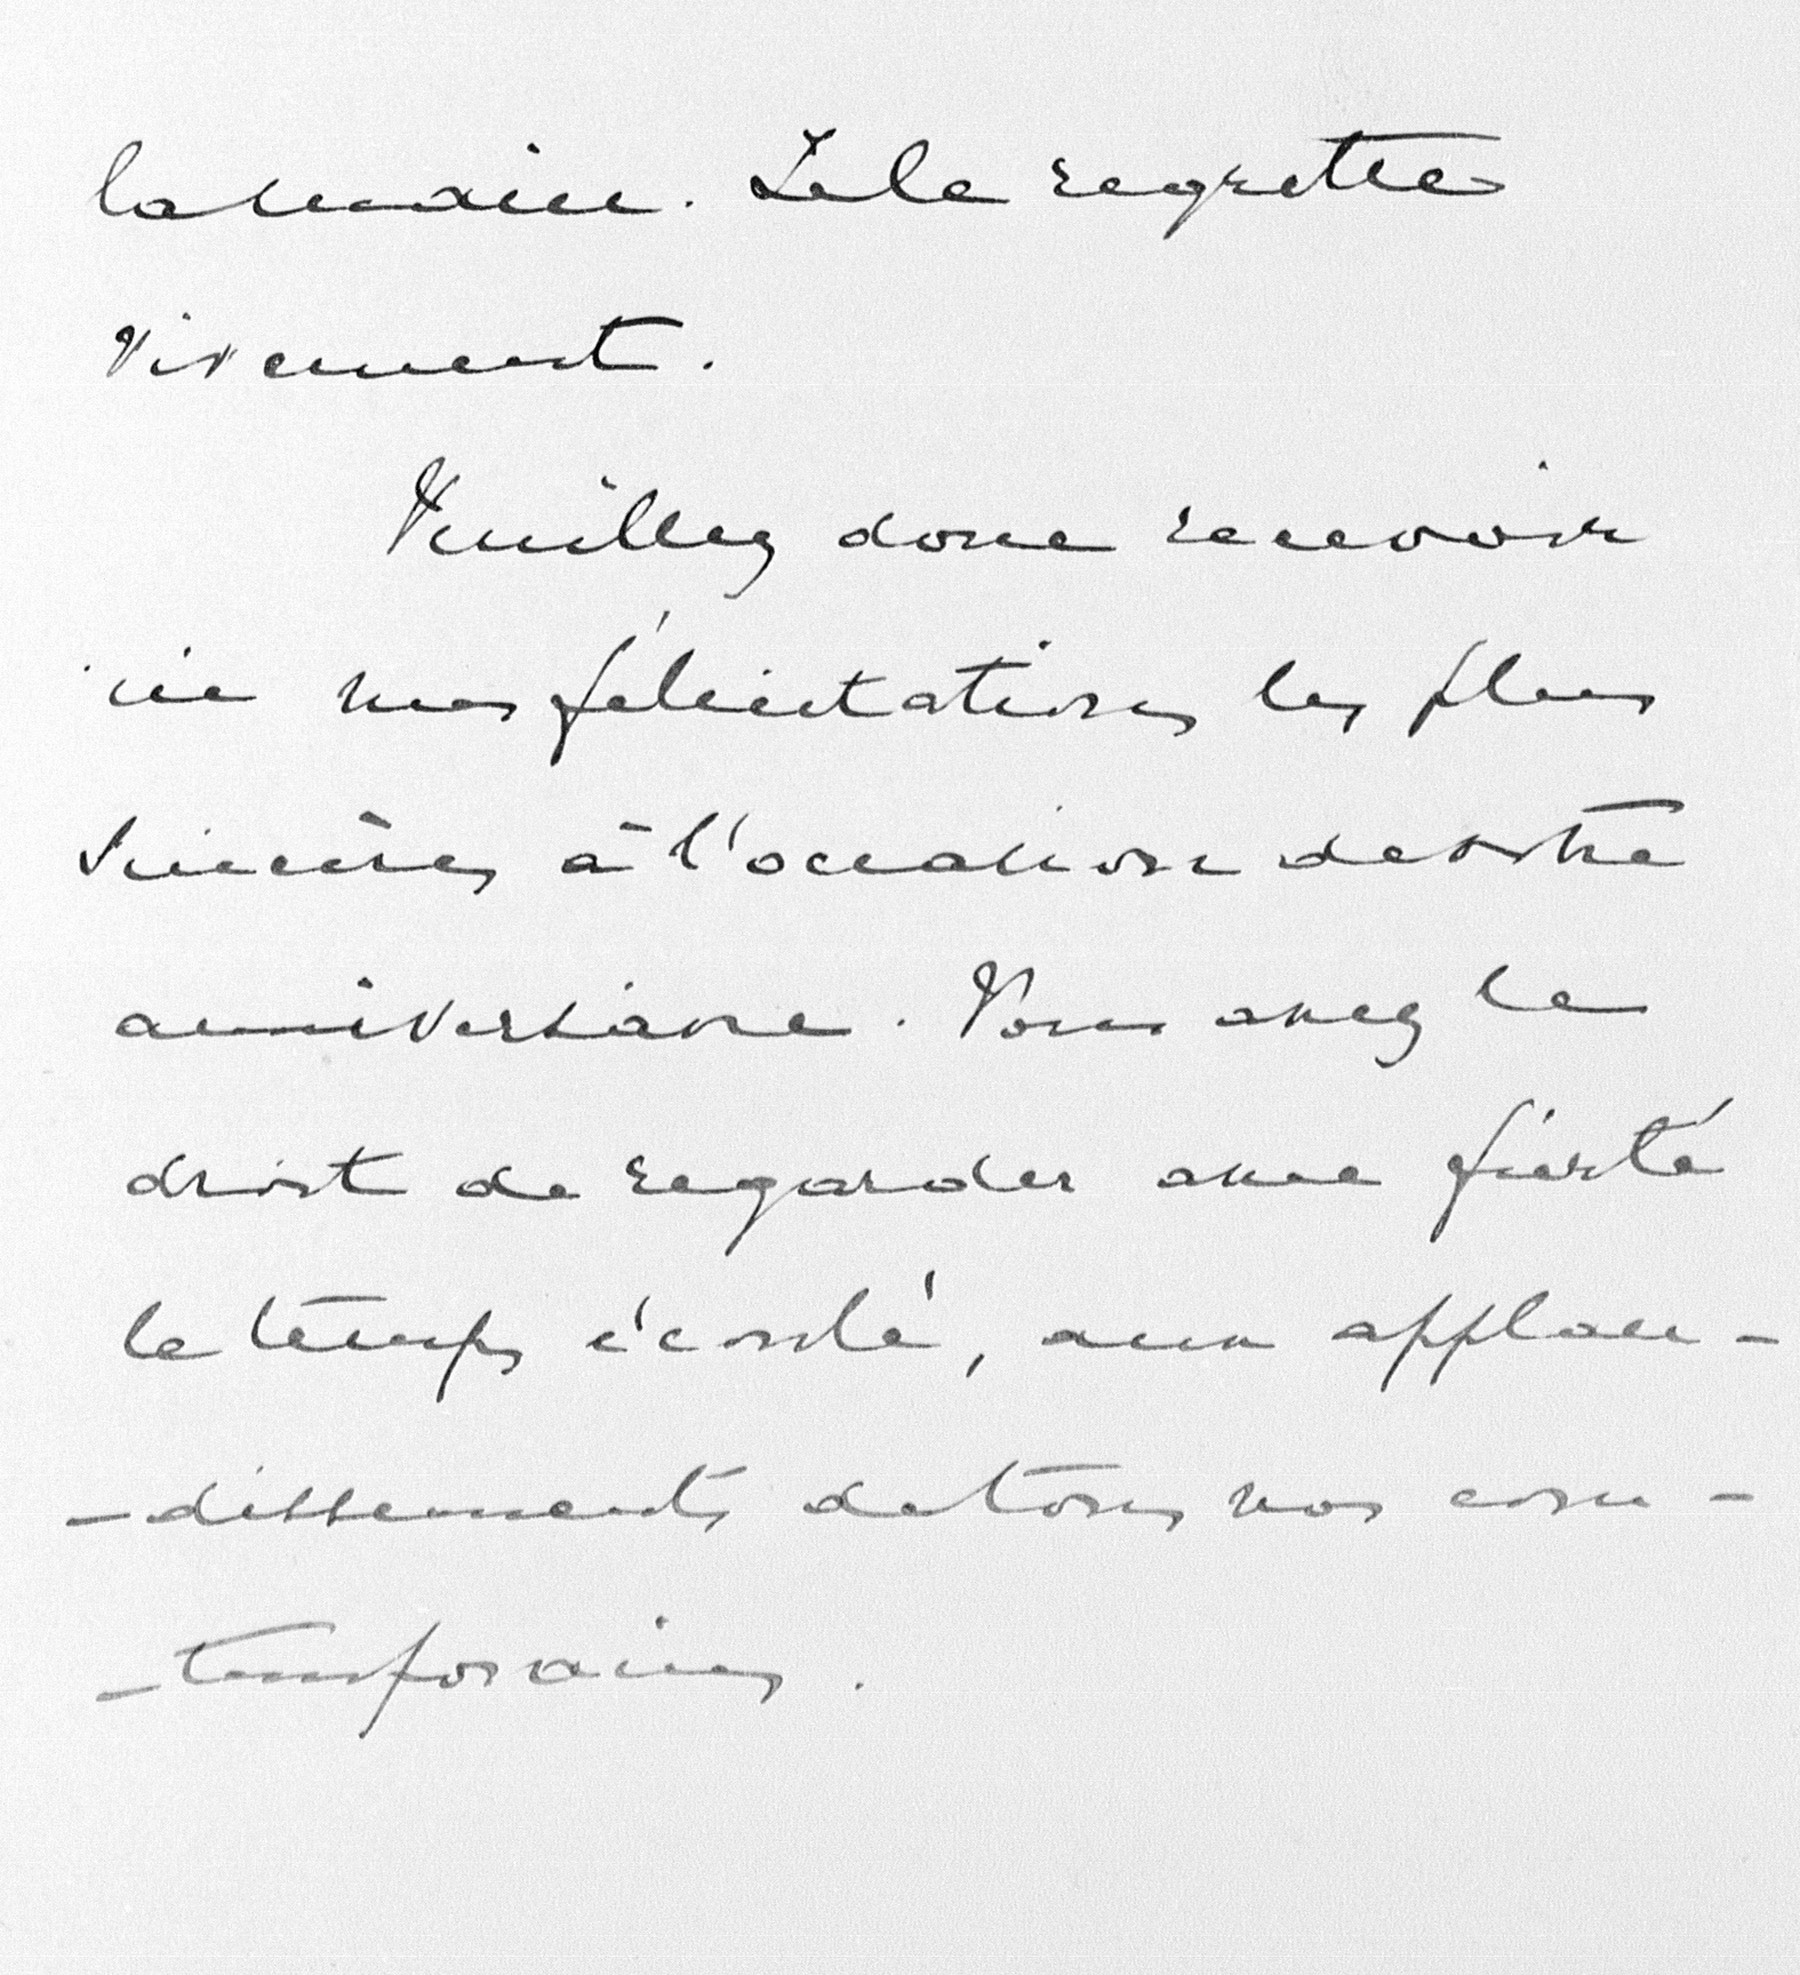 la main. Je le regrette
vivement.
Veuillez donc recevoir
ici mes félicitations les plus
sincères à l'occasion de votre
anniversaire. Vous avez le
droit de regarder avec fierté
le temps écoulé, aux applau-
-dissements de tous nos con-
-temporains.